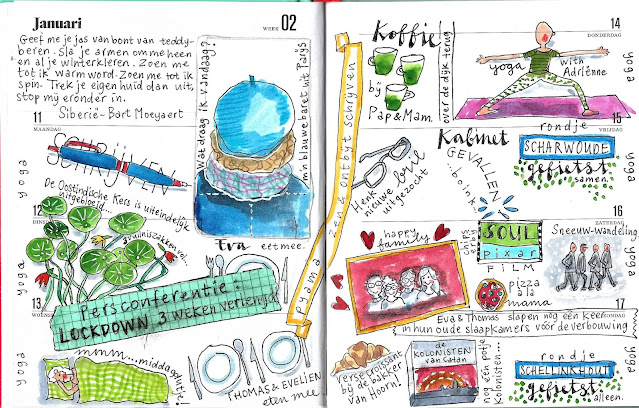 Januari
WEEK 02
Geef me je jas van bont van teddy-
beren. Sla je armen om me heen
en al je winterkleren. Zoen me
tot ik warm word. Zoen me tot ik
spin. Trek je eigen huid dan uit,
stop mij eronder in.
Siberië - Bart Moeyaert
11
MAANDAG
SCHRIJVEN
yoga
De Oostindische kers is uiteindelijk
vuilniszakken
12
yoga
Persconferentie:
LOCKDOWN 3 weken verlengd
13
WOENSDAG
yoga
mmm... middagdutje!
Wat draag ik vandaag?
m'n blauwe baret uit Parijs
Eva eet mee.
THOMAS & EVELIEN
eten mee
pyama
en & ontbyt schryven
Koffie!
bij
Pap & Mam.
over de dijk terug
14
DONDERDAG
yoga with
Adriënne
Henk
nieuwe bril
uitgezocht
Kabinet
GEVALLEN!
boink
15
VRIJDAG
rondje
SCHARWOUDE
gefietst
samen.
yoga
happy
family
chips
erby
SOUL
pixar
FILM
pizza
alla
mama
16
ZATERDAG
Sneeuw-wandeling
yoga
17
ZONDAG
Eva & Thomas slapen nog één keer
in hun oude slaapkamers vóór de verbouwing
verse croissant
bij de bakker
van Hoorn!
de
KOLONISTEN
van Catan
nog een potje
Kolonisten.
rondje
SCHELLINKHOUT
gefietst
alleen.
yoga